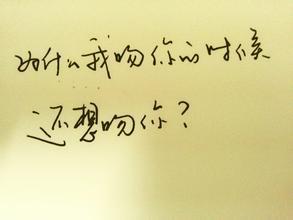 为什么我吻你的时候
还想吻你？